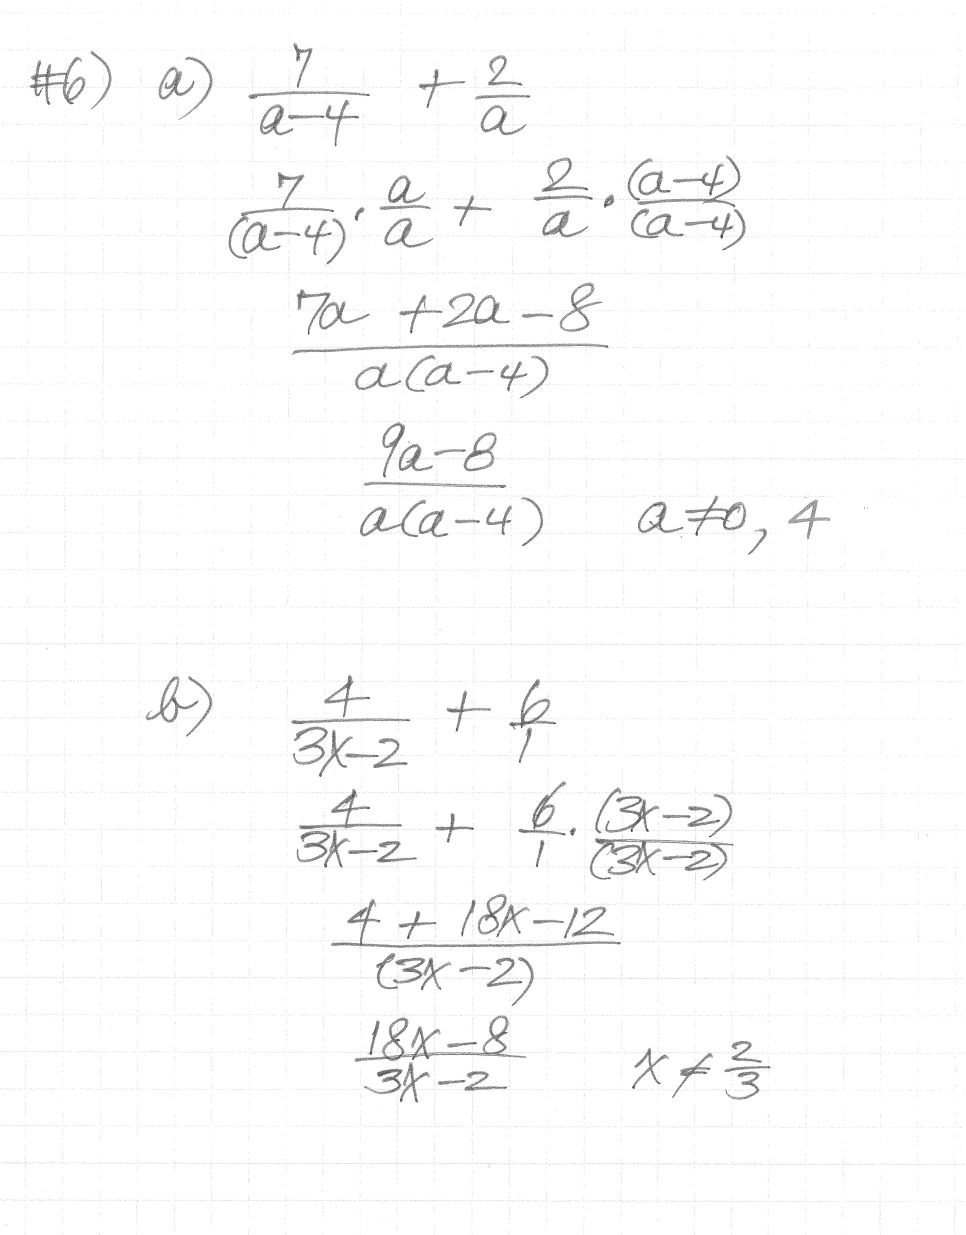 #6) a) 7/(a-4) + 2/a
7/(a-4) · a/a + 2/a · (a-4)/(a-4)
(7a + 2a - 8)/(a(a-4))
(9a-8)/(a(a-4)) a≠0, 4
b) 4/(3x-2) + 6/1
4/(3x-2) + 6/1 · (3x-2)/(3x-2)
(4 + 18x - 12)/(3x-2)
(18x-8)/(3x-2) x ≠ 2/3